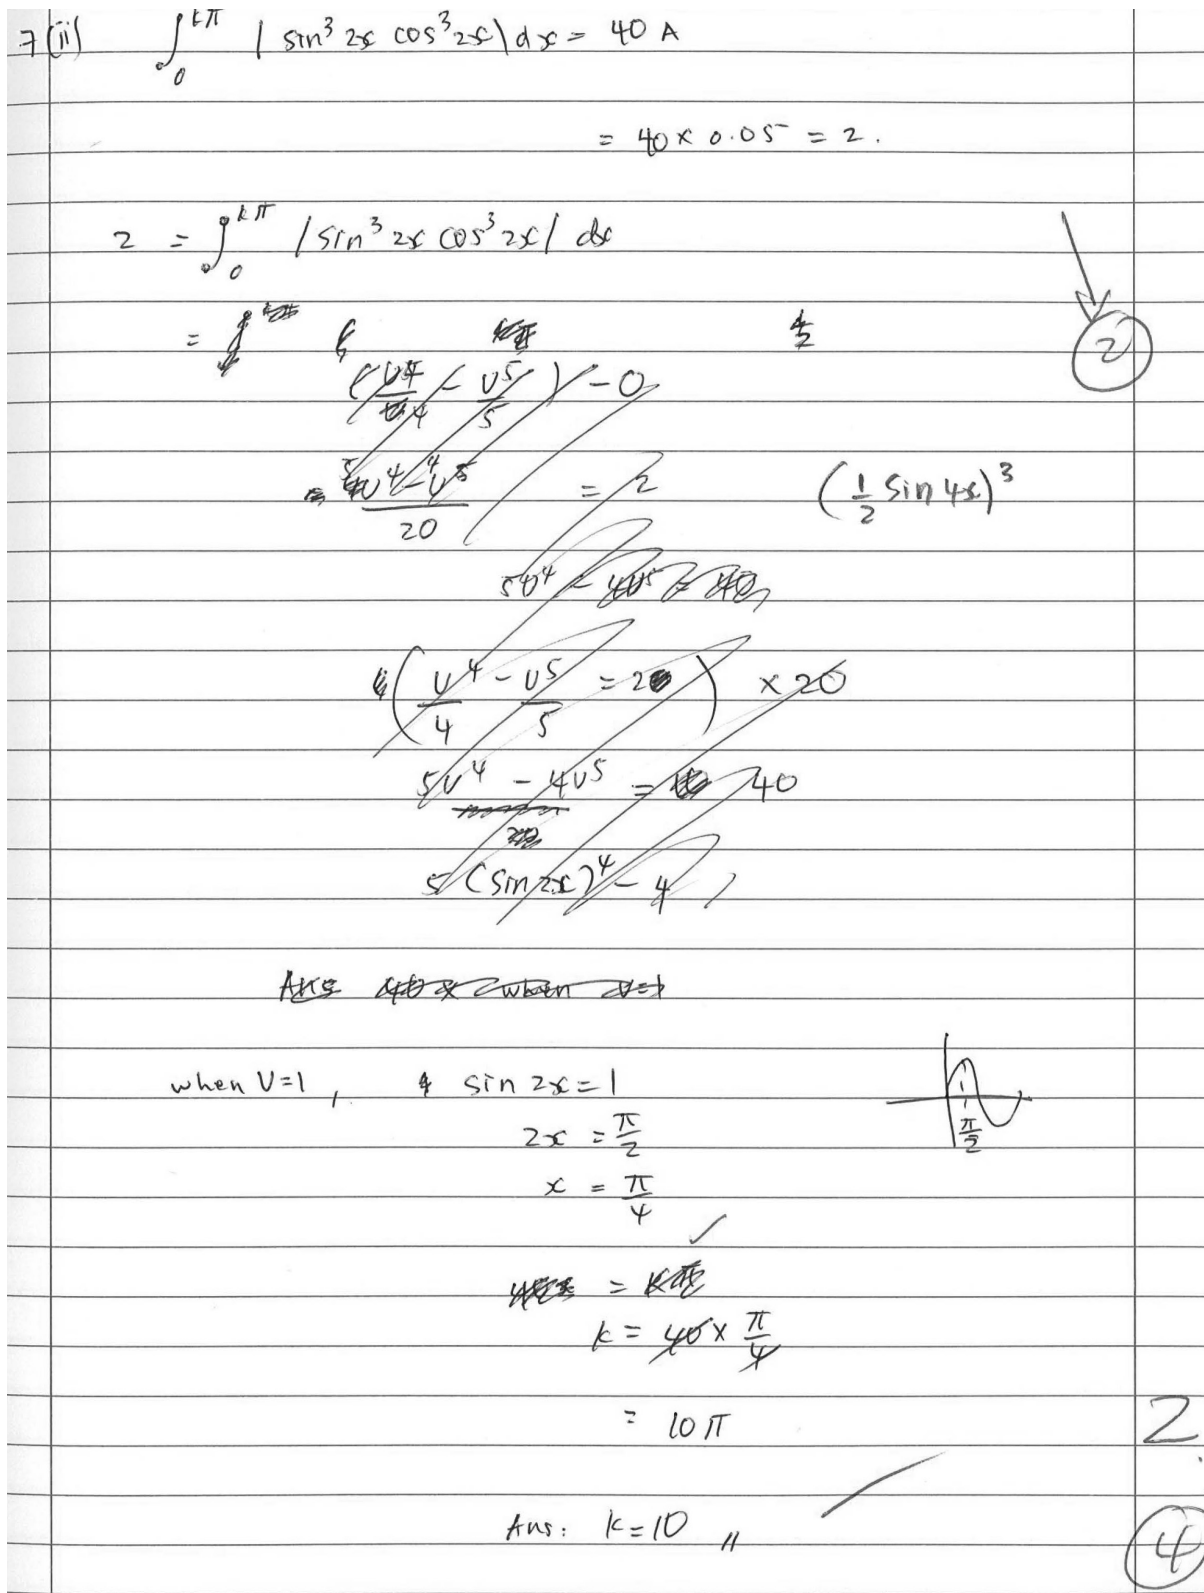 7(ii) ∫₀^{kπ} | sin³ 2x cos³ 2x | dx = 40 A
= 40 × 0.05 = 2.
2 = ∫₀^{kπ} | sin³ 2x cos³ 2x | dx
=
2
(u⁴/4 - u⁵/5) - 0
(5u⁴ - 4u⁵)/20 = 2
(½ sin 4x)³
5u⁴ - 4u⁵ = 40
(u⁴/4 - u⁵/5 = 2) × 20
5u⁴ - 4u⁵ = 40
5 (sin 2x)⁴ - 4
Ans when
when U=1, sin 2x = 1
π/2
2x = π/2
x = π/4
✓
= kπ
k = 40 × π/4
= 10π
2
Ans: k = 10 ,,
4